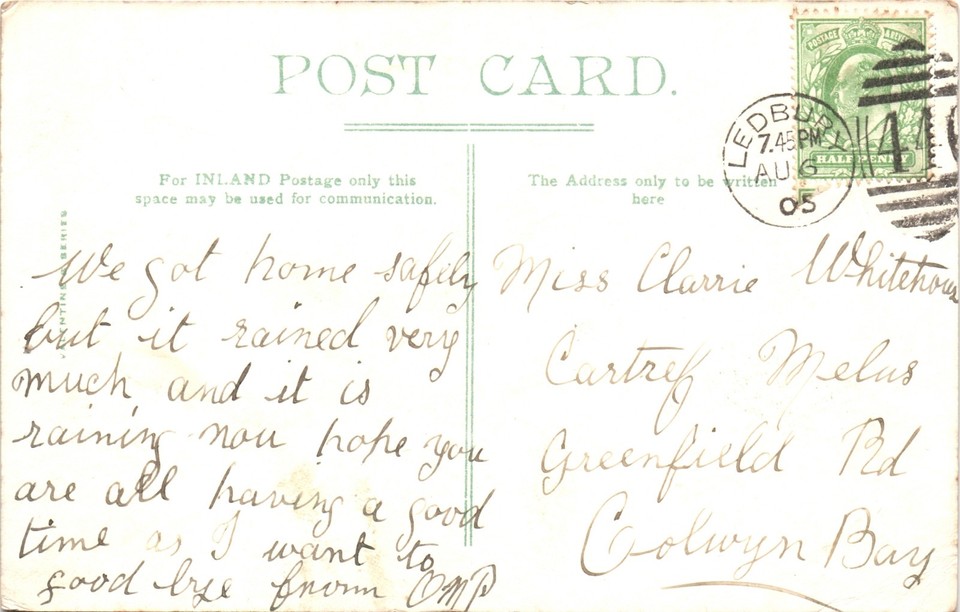 POST CARD.
POSTAGE
HALFPENNY
LEDBURY
7.45 PM
AU 6
05
44
For INLAND Postage only this
space may be used for communication.
The Address only to be written
here
We got home safely
but it rained very
much and it is
raining nou hope you
are all having a good
time as I want to
good bye from
Miss Clarrie Whitehous
Cartref Melus
Greenfield Rd
Colwyn Bay